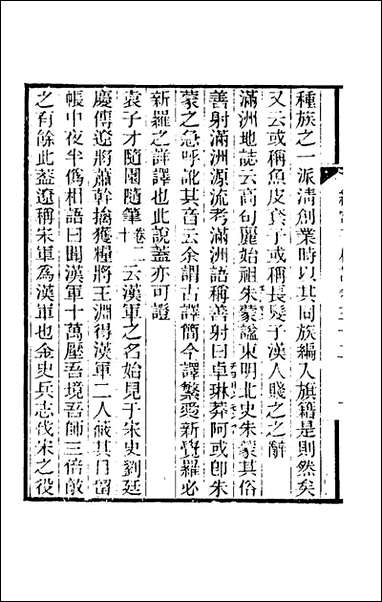 種族之一派清創業時以其同族編入旗籍是則然矣
又云或稱魚皮㺜子或稱長髮子漢人賤之之辭
滿洲地誌云高句麗始祖朱蒙諡東明北史朱蒙其俗
善射滿洲源流考滿洲語稱善射曰卓琳莽阿或卽朱
蒙之急呼訛其音云余謂古譯簡今譯繁愛新覺羅必
新羅之詳譯也此說蓋亦可證
袁子才隨園隨筆卷十二云漢軍之名始見于宋史劉廷
慶傳遼將蕭幹擒獲糧將王淵得漢軍二人蔽其目留
帳中夜半僞相語曰聞漢軍十萬壓吾境吾師三倍敵
之有餘此蓋遼稱宋軍為漢軍也金史兵志伐宋之役